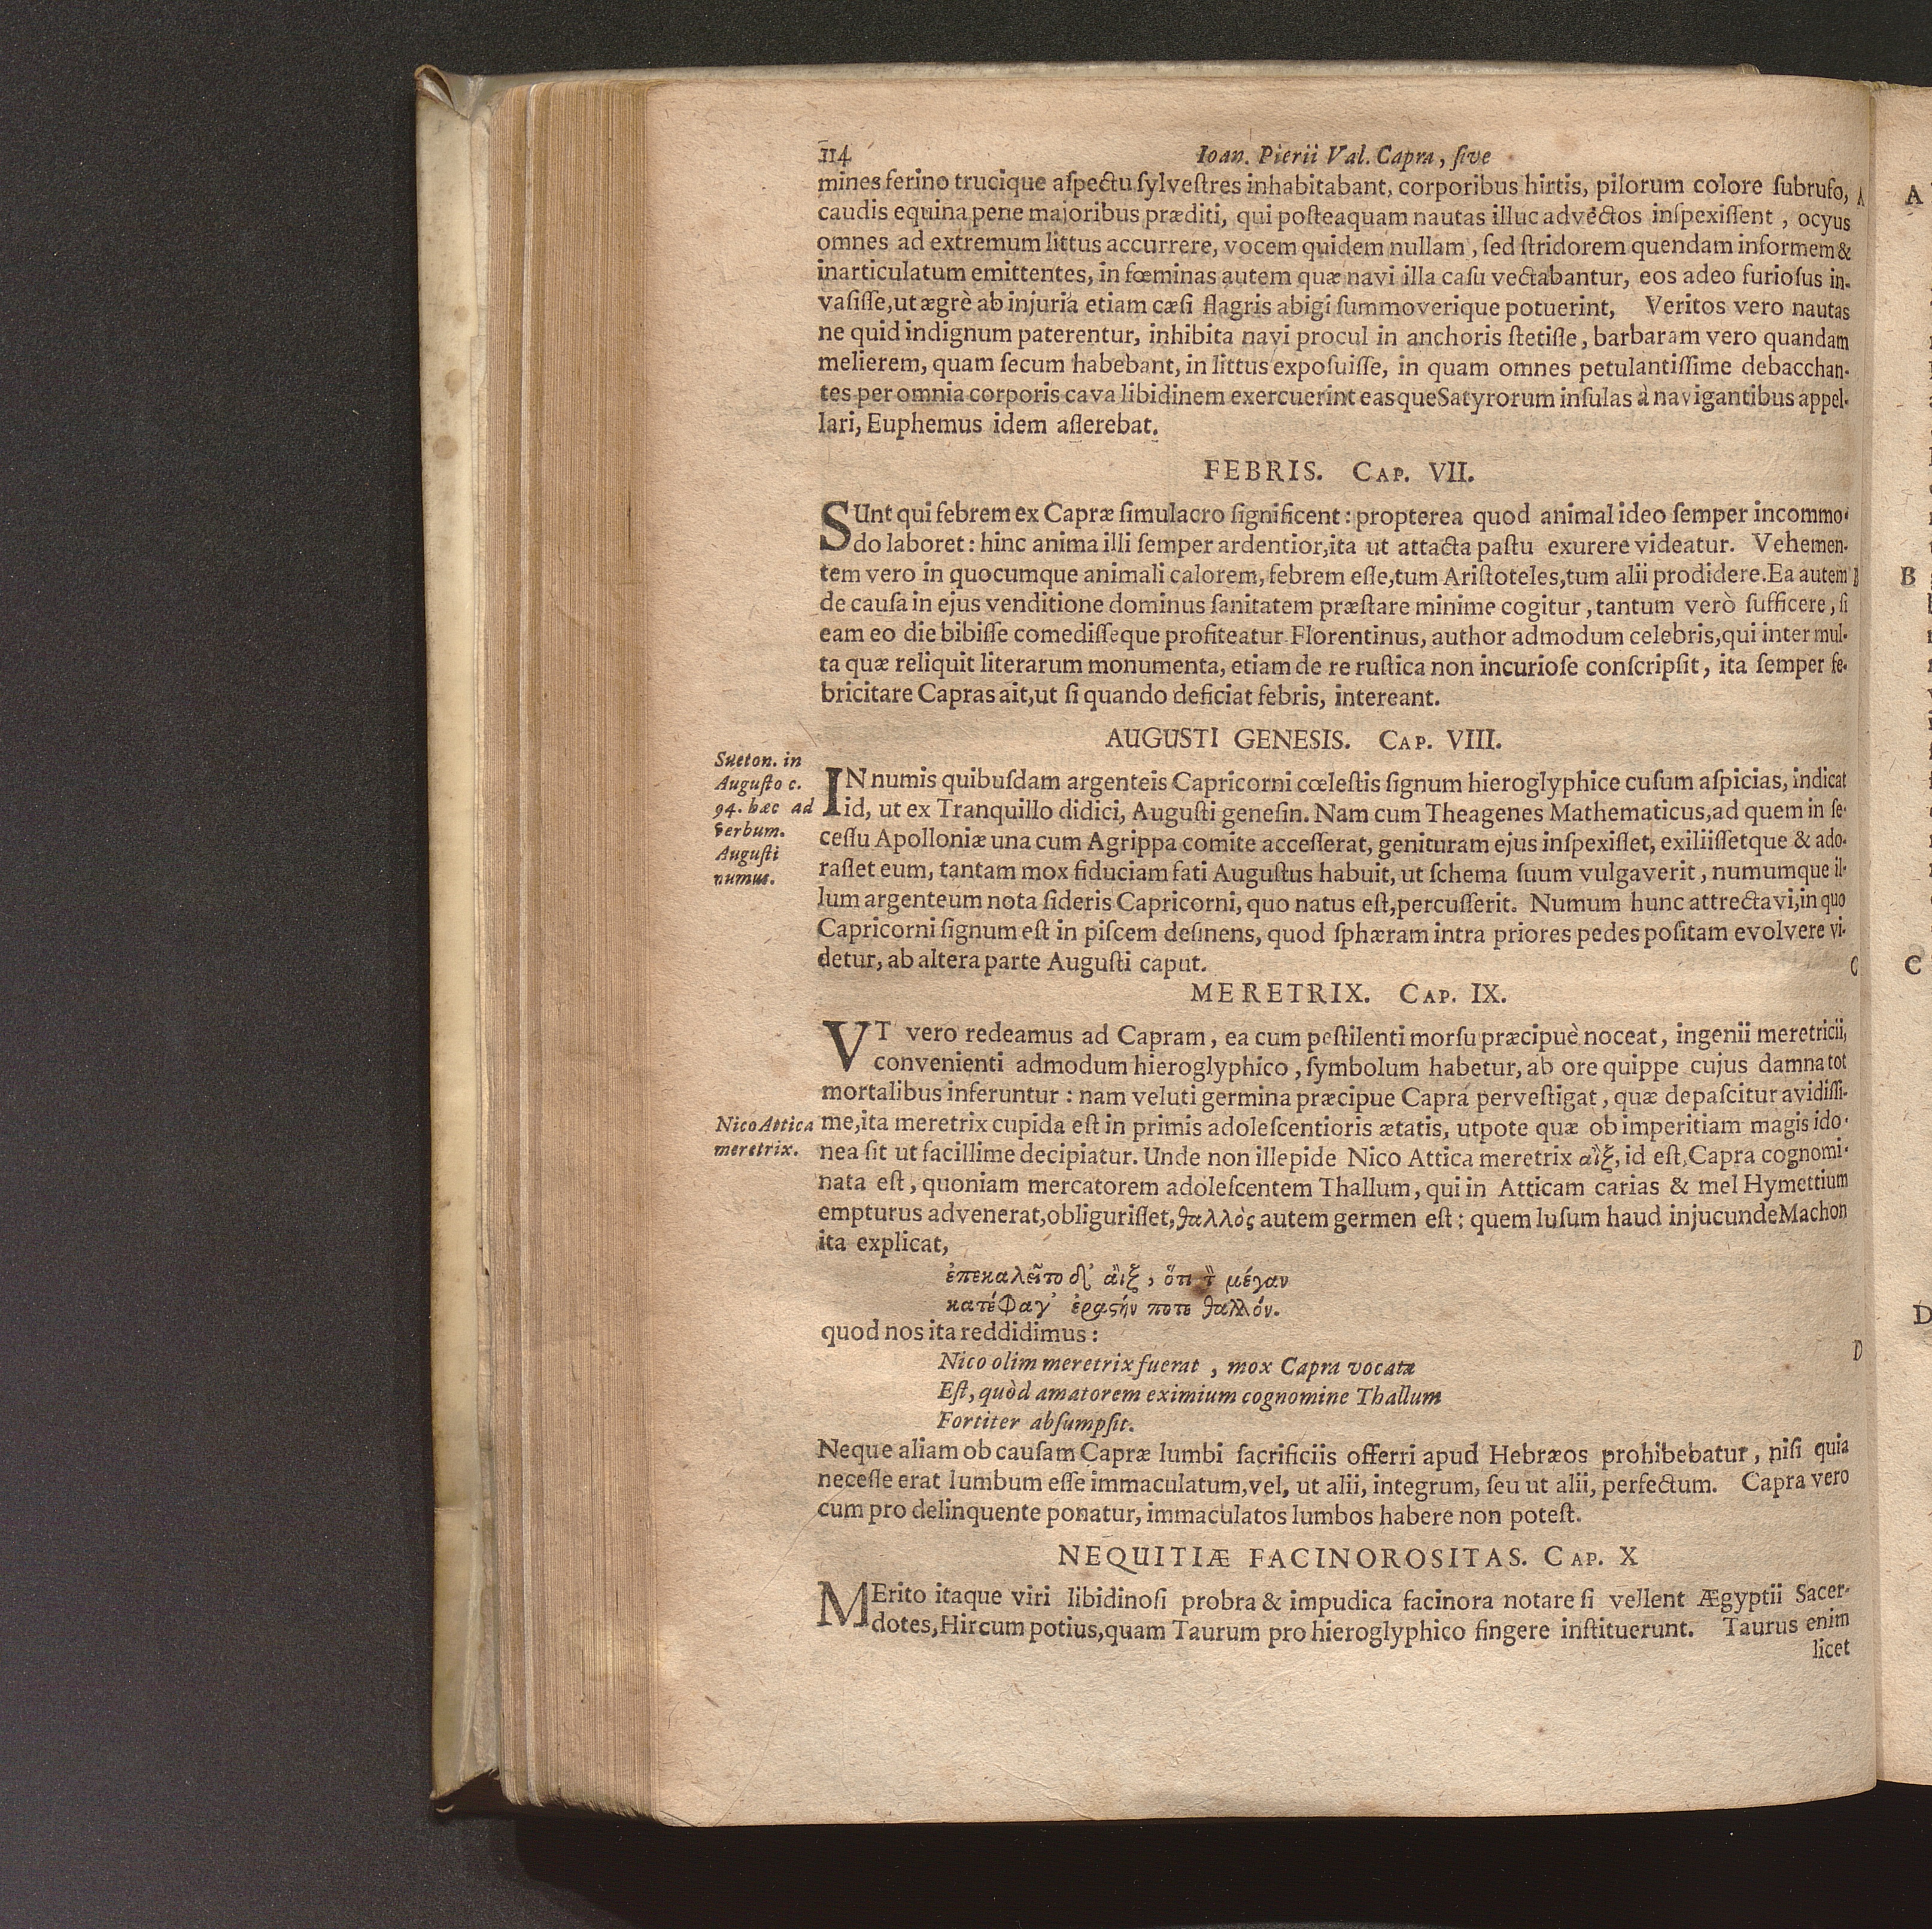 114 Ioan. Pierii Val. Capra, ſive
mines ferino trucique aſpectu ſylveſtres inhabitabant, corporibus hirtis, pilorum colore ſubrufo, A
caudis equina pene majoribus præditi, qui poſteaquam nautas illuc advectos inſpexiſſent, ocyus
omnes ad extremum littus accurrere, vocem quidem nullam, ſed ſtridorem quendam informem &
inarticulatum emittentes, in fœminas autem quæ navi illa caſu vectabantur, eos adeo furioſus in-
vaſiſſe, ut ægrè ab injuria etiam cæſi flagris abigi ſummoverique potuerint, Veritos vero nautas
ne quid indignum paterentur, inhibita navi procul in anchoris ſtetiſſe, barbaram vero quandam
melierem, quam ſecum habebant, in littus expoſuiſſe, in quam omnes petulantiſſime debacchan-
tes per omnia corporis cava libidinem exercuerint easque Satyrorum inſulas à navigantibus appel-
lari, Euphemus idem aſſerebat.
FEBRIS. CAP. VII.
SUnt qui febrem ex Capræ ſimulacro ſignificent: propterea quod animal ideo ſemper incommo-
do laboret: hinc anima illi ſemper ardentior, ita ut attacta paſtu exurere videatur. Vehemen-
tem vero in quocumque animali calorem, febrem eſſe, tum Ariſtoteles, tum alii prodidere. Ea autem B
de cauſa in ejus venditione dominus ſanitatem præſtare minime cogitur, tantum verò ſufficere, ſi
eam eo die bibiſſe comediſſeque profiteatur. Florentinus, author admodum celebris, qui inter mul-
ta quæ reliquit literarum monumenta, etiam de re ruſtica non incurioſe conſcripſit, ita ſemper fe-
bricitare Capras ait, ut ſi quando deficiat febris, intereant.
AUGUSTI GENESIS. CAP. VIII.
Sueton. in
Auguſto c.
94. hæc ad
verbum.
Auguſti
numus.
IN numis quibuſdam argenteis Capricorni cœleſtis ſignum hieroglyphice cuſum aſpicias, indicat
id, ut ex Tranquillo didici, Auguſti geneſin. Nam cum Theagenes Mathematicus, ad quem in ſe-
ceſſu Apolloniæ una cum Agrippa comite acceſſerat, genituram ejus inſpexiſſet, exiliiſſetque & ado-
raſſet eum, tantam mox fiduciam fati Auguſtus habuit, ut ſchema ſuum vulgaverit, numumque il-
lum argenteum nota ſideris Capricorni, quo natus eſt, percuſſerit. Numum hunc attrectavi, in quo
Capricorni ſignum eſt in piſcem deſinens, quod ſphæram intra priores pedes poſitam evolvere vi-
detur, ab altera parte Auguſti caput. C
MERETRIX. CAP. IX.
VT vero redeamus ad Capram, ea cum peſtilenti morſu præcipuè noceat, ingenii meretricii,
convenienti admodum hieroglyphico, ſymbolum habetur, ab ore quippe cujus damna tot
mortalibus inferuntur: nam veluti germina præcipue Capra perveſtigat, quæ depaſcitur avidiſſi-
Nico Attica
meretrix.
me, ita meretrix cupida eſt in primis adoleſcentioris ætatis, utpote quæ ob imperitiam magis ido-
nea ſit ut facillime decipiatur. Unde non illepide Nico Attica meretrix αἲξ, id eſt, Capra cognomi-
nata eſt, quoniam mercatorem adoleſcentem Thallum, qui in Atticam carias & mel Hymettium
empturus advenerat, obliguriſſet, θαλλὸς autem germen eſt: quem luſum haud injucunde Machon
ita explicat,
ἐπεκαλεῖτο δ' αἲξ, ὅτι τ̀ μέγαν
κατέφαγ' ἐραςήν ποτο θαλλόν.
quod nos ita reddidimus:
Nico olim meretrix fuerat, mox Capra vocata D
Eſt, quòd amatorem eximium cognomine Thallum
Fortiter abſumpſit.
Neque aliam ob cauſam Capræ lumbi ſacrificiis offerri apud Hebræos prohibebatur, niſi quia
neceſſe erat lumbum eſſe immaculatum, vel, ut alii, integrum, ſeu ut alii, perfectum. Capra vero
cum pro delinquente ponatur, immaculatos lumbos habere non poteſt.
NEQUITIÆ FACINOROSITAS. CAP. X
MErito itaque viri libidinoſi probra & impudica facinora notare ſi vellent Ægyptii Sacer-
dotes, Hircum potius, quam Taurum pro hieroglyphico fingere inſtituerunt. Taurus enim
licet
A
B
C
D